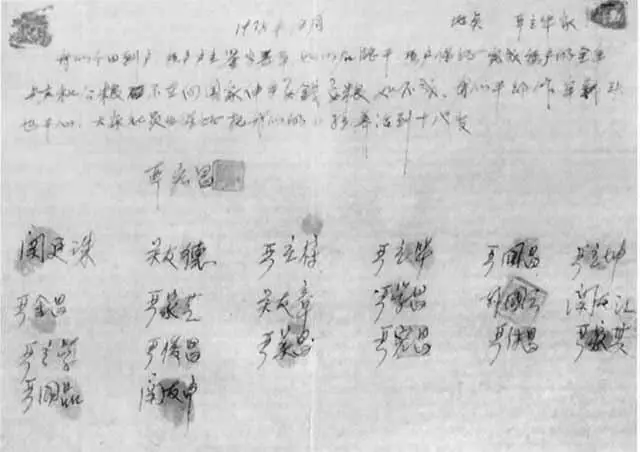 1978年12月 地点 严立华家
我们分田到户 每户户主签字盖章 如以后能干 每户保证完成每户的全年
上交和公粮 不在向国家伸手要钱要粮 如不成，我们干部作牢刹头
也干心，大家社员也保证把我们的小孩养活到十八岁
严宏昌
关廷珠 关友德 严立符 严立华 严国昌 严立坤
严金昌 严家芝 关友章 严学昌 韩国云 关友江
严立学 严俊昌 严美昌 严宏昌 严付昌 严家其
严国品 关友申